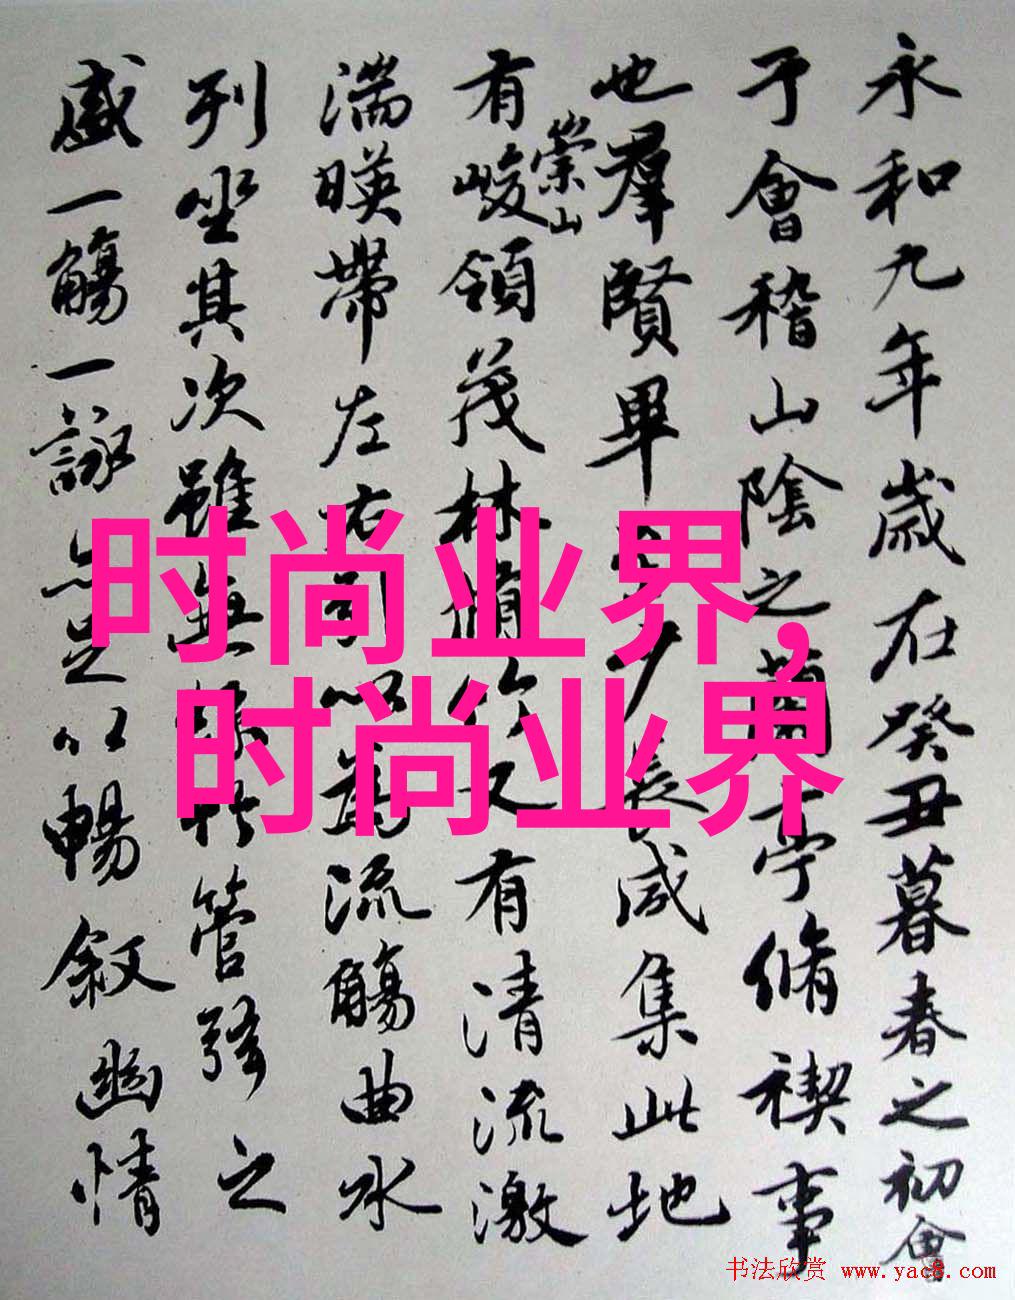 永和九年歲在癸丑暮春之初會
于會稽山陰之蘭亭脩禊事
也羣賢畢至少長咸集此地
有崇山峻領茂林脩竹又有清流激
湍暎帶左右引以為流觴曲水
列坐其次雖無絲竹管弦之
盛一觴一詠亦足以暢叙幽情
时尚业界,
时尚业界
书法欣赏 www.yac8.com